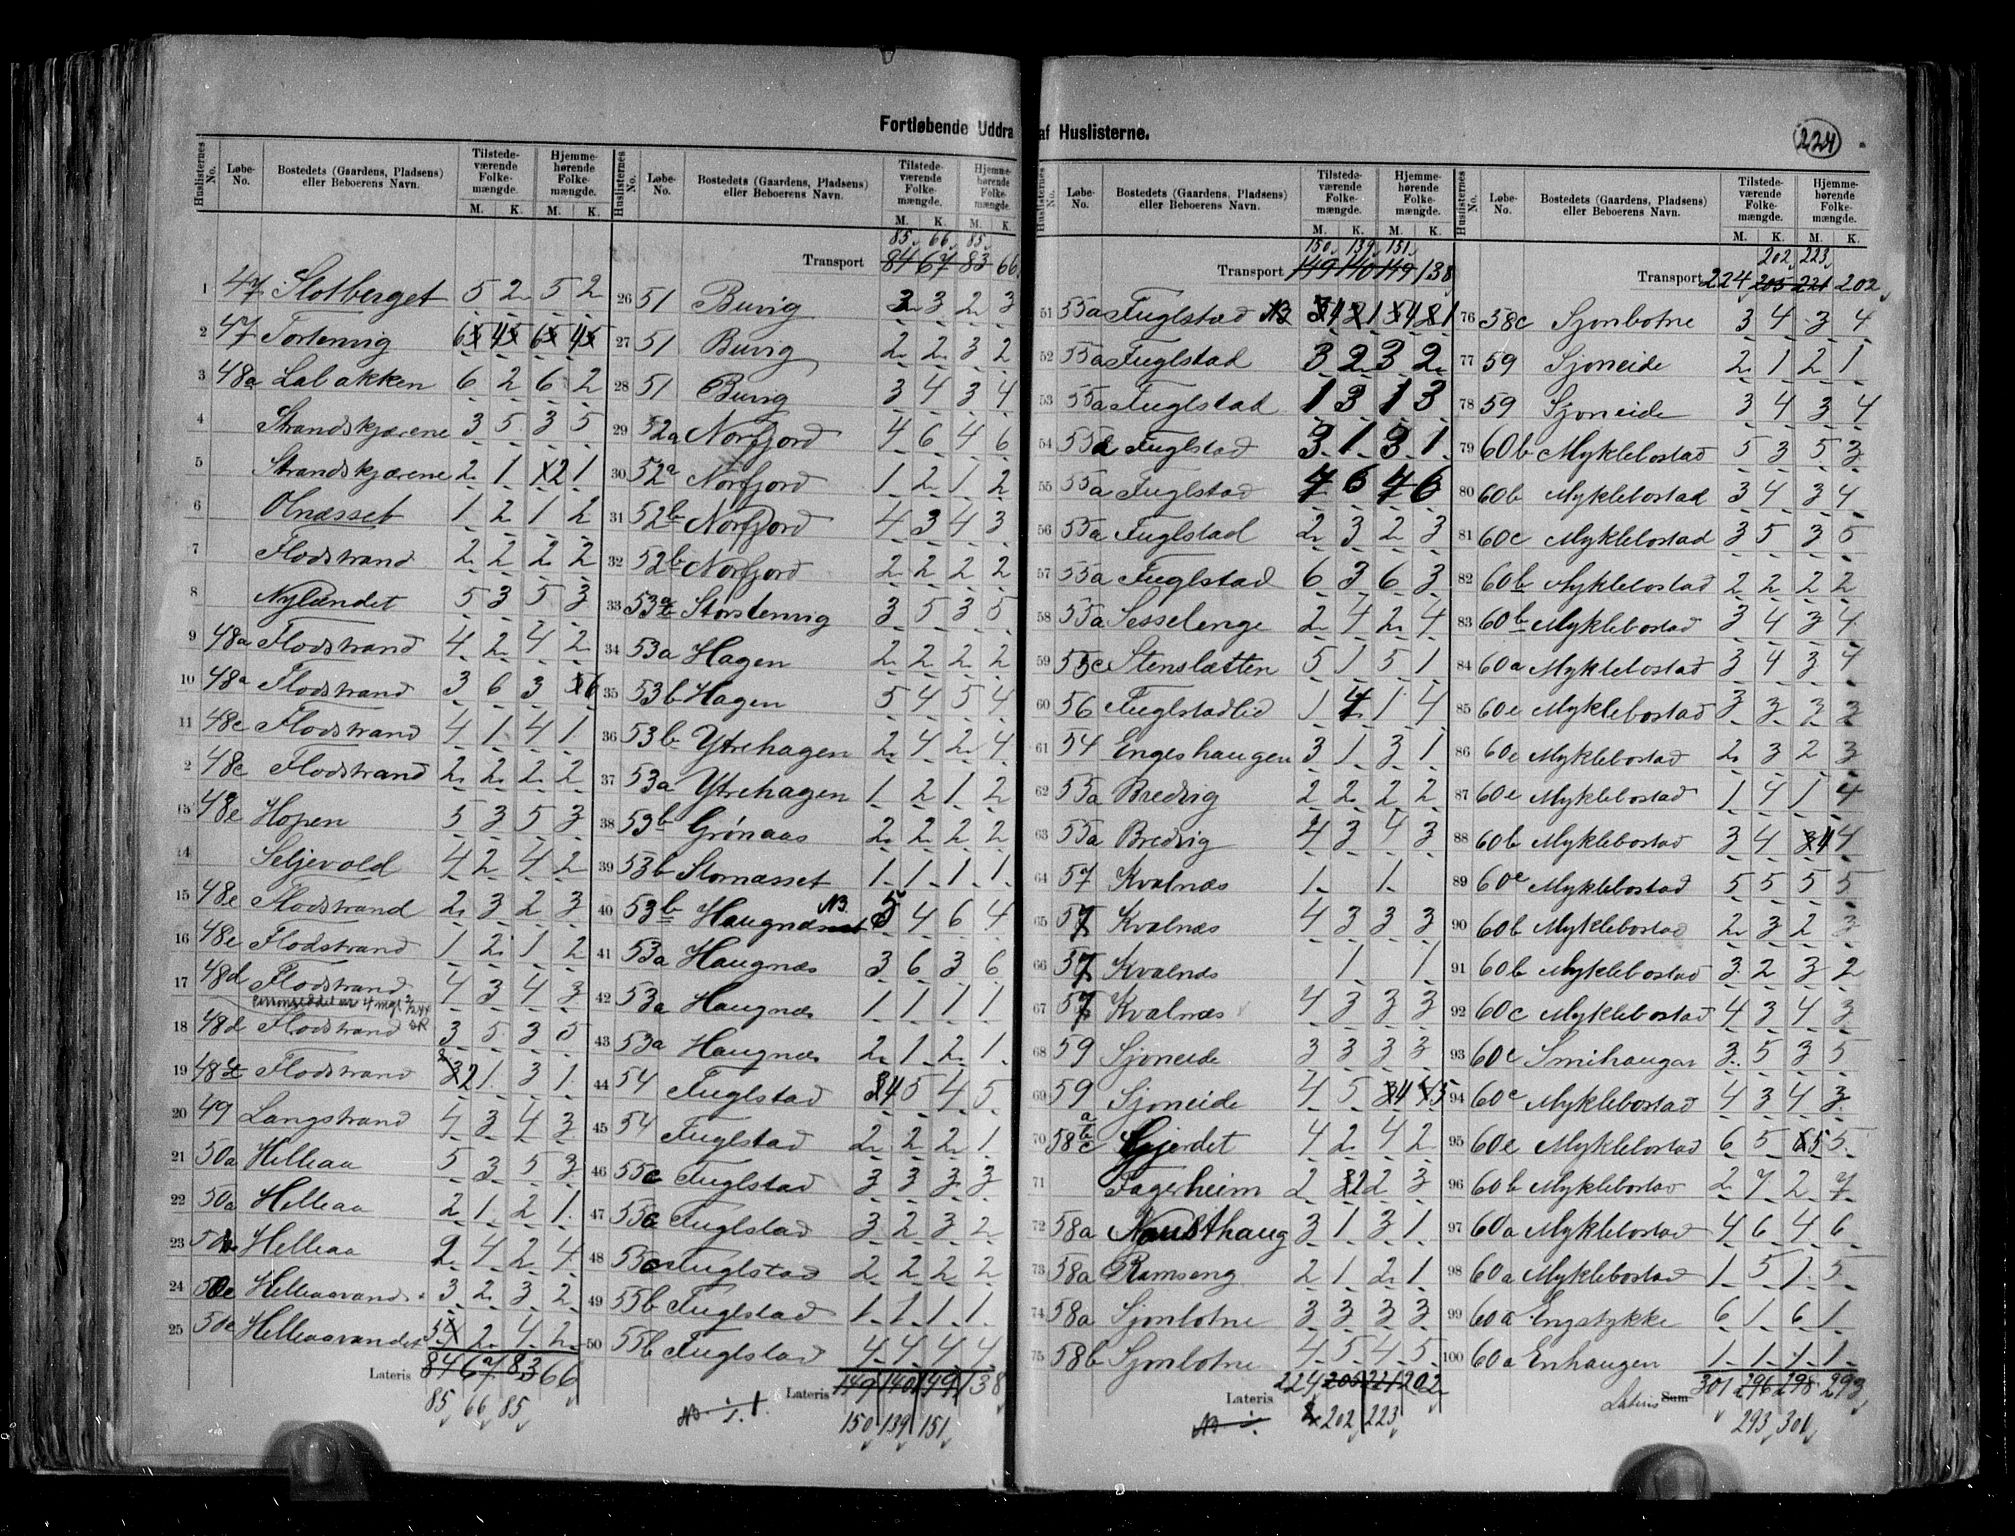 Fortløbende Uddra af Huslisterne.
224
Huslisternes No. Løbe-No. Bostedets (Gaardens, Pladsens) eller Beboerens Navn. Tilstedeværende Folkemængde. M. K. Hjemmehørende Folkemængde. M. K.
1 47 Slotberget 5 2 5 2
2 47 Tortenvig 6 4 6 4
3 48a Labakken 6 2 6 2
4 Strandskjærene 3 5 3 5
5 Strandskjærene 2 1 2 1
6 Olnæsset 1 2 1 2
7 Flodstrand 2 2 2 2
8 Nylændet 5 3 5 3
9 48a Flodstrand 4 2 4 2
10 48a Flodstrand 3 6 3 6
11 48c Flodstrand 4 1 4 1
2 48c Flodstrand 2 2 2 2
13 48e Hopen 5 3 5 3
14 Seljevold 4 2 4 2
15 48e Flodstrand 2 3 2 3
16 48e Flodstrand 1 2 1 2
17 48d Flodstrand 4 3 4 3
18 48d Flodstrand 3 5 3 5
19 48d Flodstrand 2 1 3 1
20 49 Langstrand 4 3 4 3
21 50a Helleaa 5 3 5 3
22 50a Helleaa 2 1 2 1
23 50 Helleaa 2 4 2 4
24 50c Helleaavand 3 2 3 2
25 50a Helleaavandet 5 2 4 2
Lateris 84 67 83 66
85 66 85
Huslisternes No. Løbe-No. Bostedets (Gaardens, Pladsens) eller Beboerens Navn. Tilstedeværende Folkemængde. M. K. Hjemmehørende Folkemængde. M. K.
85 66 85
Transport 84 67 83 66
26 51 Buvig 2 3 2 3
27 51 Buvig 2 2 3 2
28 51 Buvig 3 4 3 4
29 52a Norfjord 4 6 4 6
30 52a Norfjord 1 2 1 2
31 52b Norfjord 4 3 4 3
32 52b Norfjord 2 2 2 2
33 53a Storstenvig 3 5 3 5
34 53a Hagen 2 2 2 2
35 53b Hagen 5 4 5 4
36 53b Ytrehagen 2 4 2 4
37 53a Ytrehagen 1 2 1 2
38 53b Grønaas 2 2 2 2
39 53b Slomæsset 1 1 1 1
40 53b Haugnæs NB. 5 4 6 4
41 53a Haugnæs 3 6 3 6
42 53a Haugnæs 1 1 1 1
43 53a Haugnæs 2 1 2 1
44 54 Fuglstad 4 5 4 5
45 54 Fuglstad 2 2 2 1
46 55c Fuglstad 3 3 3 3
47 55c Fuglstad 3 2 3 2
48 55c Fuglstad 2 2 2 2
49 55b Fuglstad 1 1 1 1
50 55b Fuglstad 4 4 4 4
Lateris 149 140 149 138
150 139 151
Huslisternes No. Løbe-No. Bostedets (Gaardens, Pladsens) eller Beboerens Navn. Tilstedeværende Folkemængde. M. K. Hjemmehørende Folkemængde. M. K.
150 139 151
Transport 149 140 149 138
51 55a Fuglstad NB 4 1 4 1
52 55a Fuglstad 3 2 3 2
53 55a Fuglstad 1 3 1 3
54 55a Fuglstad 3 1 3 1
55 55a Fuglstad 4 6 4 6
56 55a Fuglstad 2 3 2 3
57 55a Fuglstad 6 3 6 3
58 55a Sesselenge 2 4 2 4
59 55c Stenslætten 5 1 5 1
60 56 Fuglstadlid 1 4 1 4
61 54 Engeshaugen 3 1 3 1
62 55a Bredvig 2 2 2 2
63 55a Bredvig 4 3 4 3
64 57 Kvalnæs 1 1
65 57 Kvalnæs 4 3 3 3
66 57 Kvalnæs 1 1
67 57 Kvalnæs 4 3 3 3
68 59 Sjoneide 3 3 3 3
69 59 Sjoneide 4 5 4 5
70 58 a b c Gjerdet 4 2 4 2
71 Fagerheim 2 2 2 3
72 58a Nausthaug 3 1 3 1
73 58a Ramseng 2 1 2 1
74 58a Sjonbotne 3 3 3 3
75 58b Sjonbotne 4 5 4 5
Lateris 224 205 221 202
202 223
Huslisternes No. Løbe-No. Bostedets (Gaardens, Pladsens) eller Beboerens Navn. Tilstedeværende Folkemængde. M. K. Hjemmehørende Folkemængde. M. K.
202 223
Transport 224 205 221 202
76 58c Sjonbotne 3 4 3 4
77 59 Sjoneide 2 1 2 1
78 59 Sjoneide 3 4 3 4
79 60b Myklebostad 5 3 5 3
80 60b Myklebostad 3 4 3 4
81 60c Myklebostad 3 5 3 5
82 60b Myklebostad 2 2 2 2
83 60b Myklebostad 3 4 3 4
84 60a Myklebostad 3 4 3 4
85 60e Myklebostad 3 3 3 3
86 60e Myklebostad 2 3 2 3
87 60e Myklebostad 1 4 1 4
88 60b Myklebostad 3 4 4 4
89 60e Myklebostad 5 5 5 5
90 60b Myklebostad 2 3 2 3
91 60b Myklebostad 3 2 3 2
92 60c Myklebostad 4 3 4 3
93 60c Smihaugar 3 5 3 5
94 60c Myklebostad 4 3 4 3
95 60e Myklebostad 6 5 5 5
96 60b Myklebostad 2 7 2 7
97 60a Myklebostad 4 6 4 6
98 60a Myklebostad 1 5 1 5
99 60a Engstykke 6 1 6 1
100 60a Enhaugen 1 1 1 1
Lateris Sum 301 296 298 293
293 301